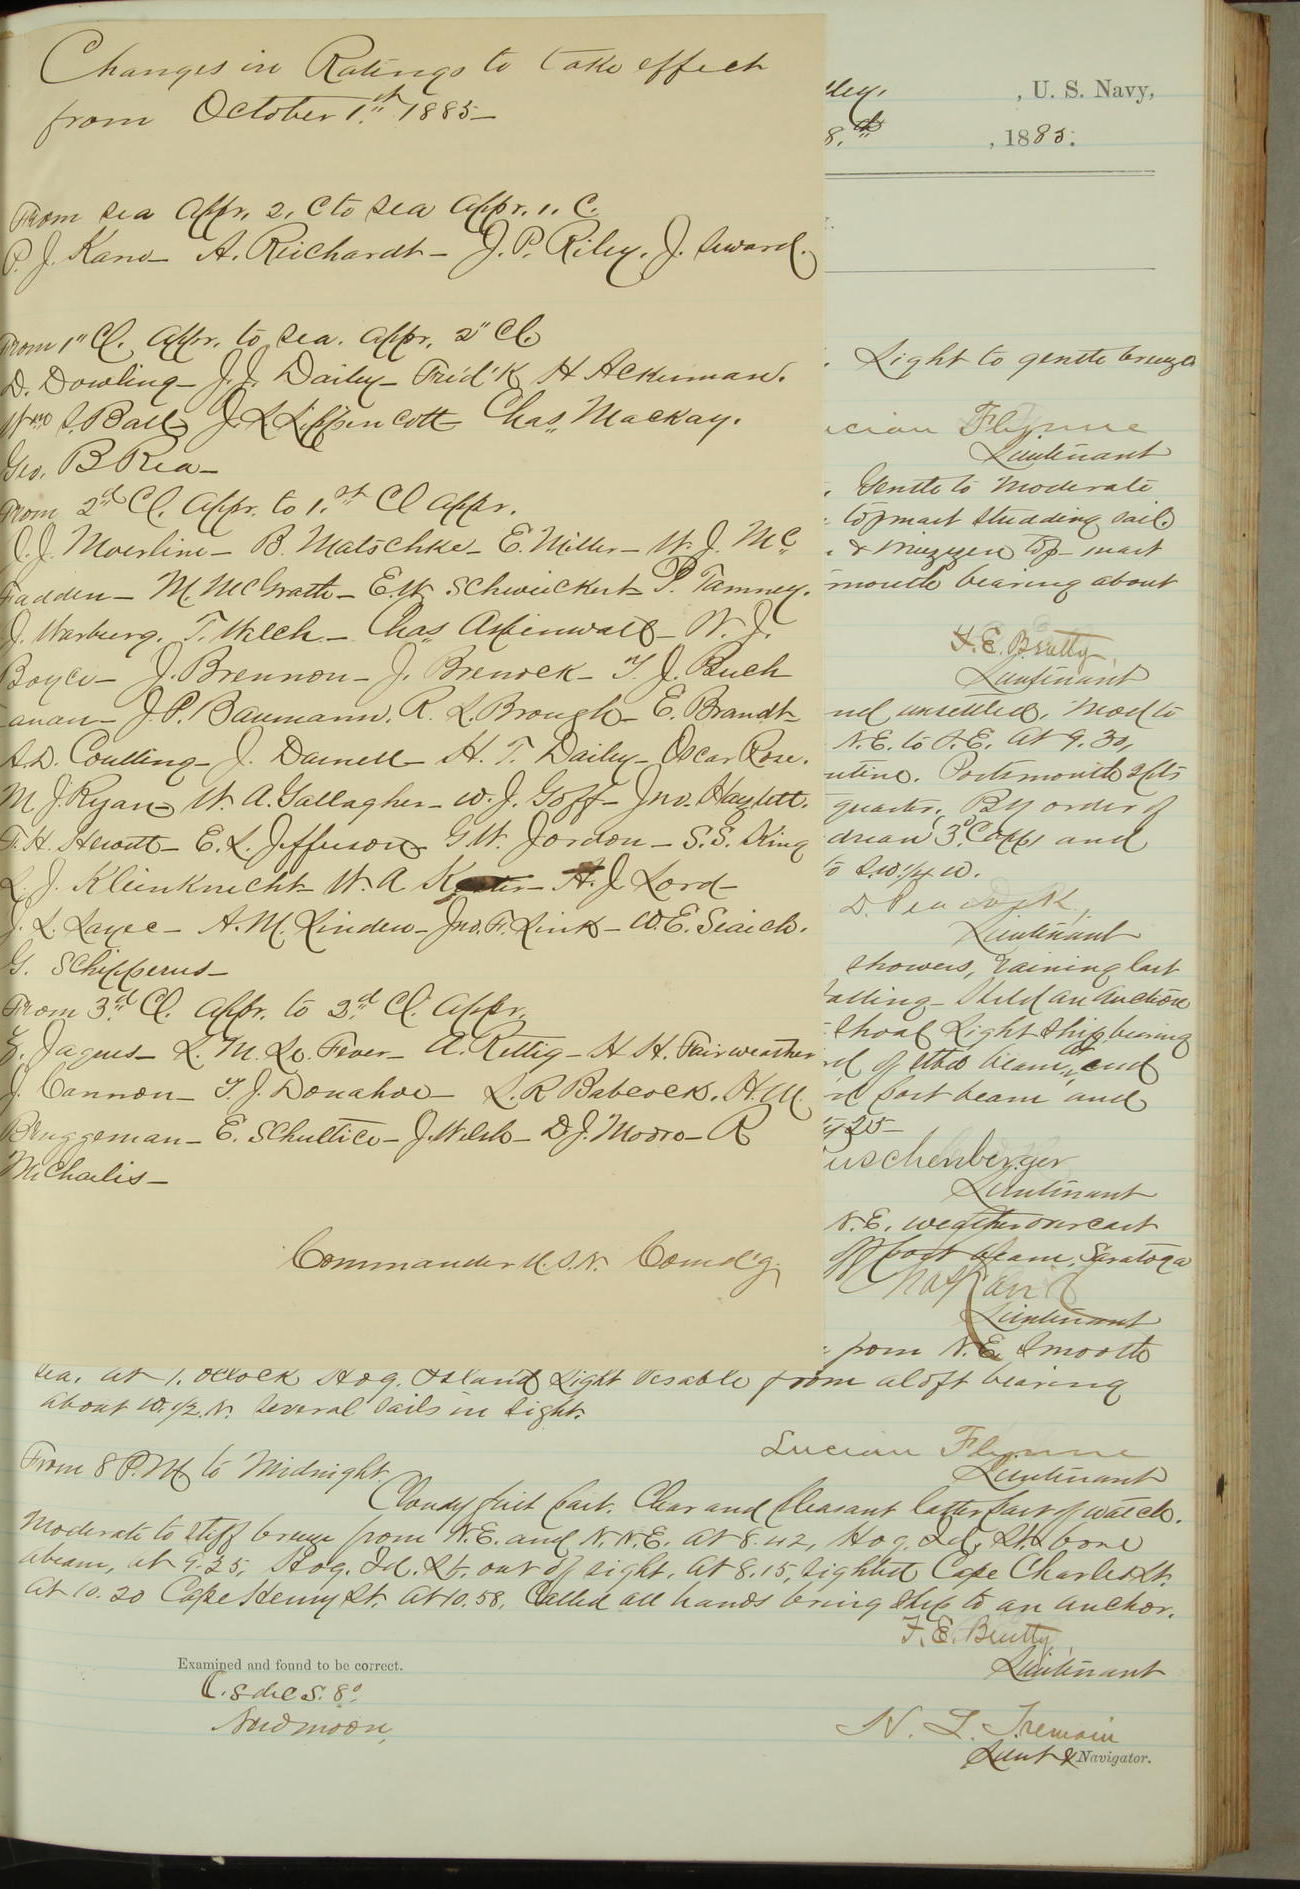 Changes in Ratings to take effect
from October 1.st 1885—
From sea Appr. 2. C to sea Appr. 1. C.
P. J. Kane— A. Reichardt— J. P. Riley. J. Seward.
From 1" Cl. Appr. to sea. Appr. 2" Cl.
D. Dowling— J. J. Dailey— Fred'k H Ackerman.
Wm S. Ball— J. L Lippencott— Chas. Mackay.
Geo. B Rea—
From 2d Cl. Appr. to 1.st Cl Appr.
J. Moerline— B. Matschke— E. Miller— W. J. Mc
Fadden— M. McGrath— E. W. Schwieckert— P. Tamney.
J. Warburg. T. Welch— Chas Aspinwall— W. J.
Boyce— J. Brennon— J. Brenock— T. J. Buch
anan— J. P. Baumann. R. L. Brough— E. Brandt—
S. D. Coulling— J. Darnell— H. T. Dailey— Oscar Rose.
M J. Ryan— W. A. Gallagher— W. J. Goff— Jno. Hazlett.
F. H. Hewitt— E. L. Jefferson— G W. Jordon— S. S. King
L. J. Kleinknecht— W. A H. J Lord—
J. L. Layre— A. M. Linden— Jno. F. Link— W. E. Seaich.
G. Schipperus—
From 3d Cl. Appr. to 2d Cl. Appr.
Jaques— L. M. Le. Fever— A. Rettig— H H. Fairweather
J. Cannon— T. J. Donahoe— L. R Babcock. H. M.
Bruggeman— E. Schultice— J. Welsh— D J. Moore— R
Michaelis—
Commander U. S. N. Comd'g.
lley, , U. S. Navy,
8.th , 1885.
. Light to gentle breeze
ucian Flynne
Lieutenant
. Gentle to moderate
topmast studding sail.
& mizzen top-mast
mouth bearing about
F. E. Beatty,
Lieutenant
nd unsettled. Mod to
N. E. to S. E. At 9.30,
utine. Portsmouth 2 pts
quarter. By order of
and
to S.W. 1/4 W.
Lieutenant
showers, raining last
falling— Held an Auction
Shoal Light Ship bearing
rd of the beam, and
d port beam and
uschenberger
Lieutenant
N. E. weather overcast
off port beam, Saratoga
Lieutenant
from N. E. Smooth
sea. At 1. oclock Hog. Island Light visable from aloft bearing
about W. 1/2. N. Several sails in sight.
Lucian Flynne
Lieutenant
From 8 P. M. to Midnight.
Cloudy first part. Clear and pleasant latter part of watch.
Moderate to stiff breeze from N. E. and N. N. E. At 8.42, Hog. Id. Lt. bore
abeam, at 9.35, Hog. Id. Lt. out of sight. At 8.15, sighted Cape Charles Lt.
At 10.20 Cape Henry Lt. At 10.58, Called all hands bring ship to an anchor.
F. E. Beatty,
Lieutenant
Examined and found to be correct.
N. L. Tremain
Lieut & Navigator.